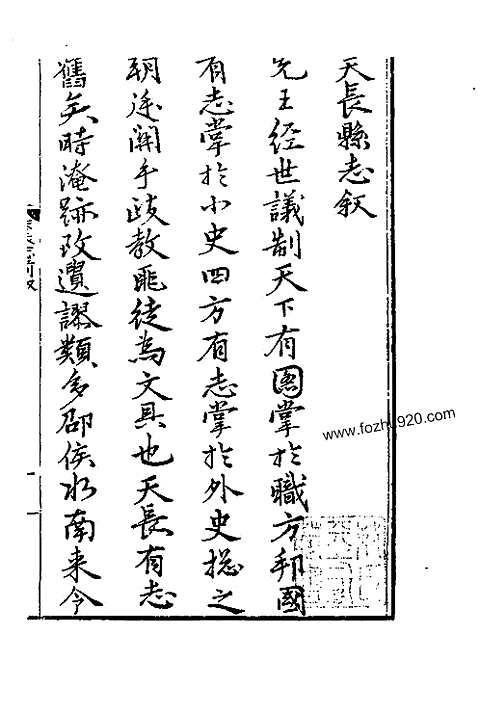 天長縣志叙
先王經世議制天下有圖掌於職方邦國
有志掌於小史四方有志掌於外史揔之
明逵開乎政教匪徒為文具也天長有志
舊矣時淹跡改遺謬類多邵侯水南来令
www.fozhu920.com